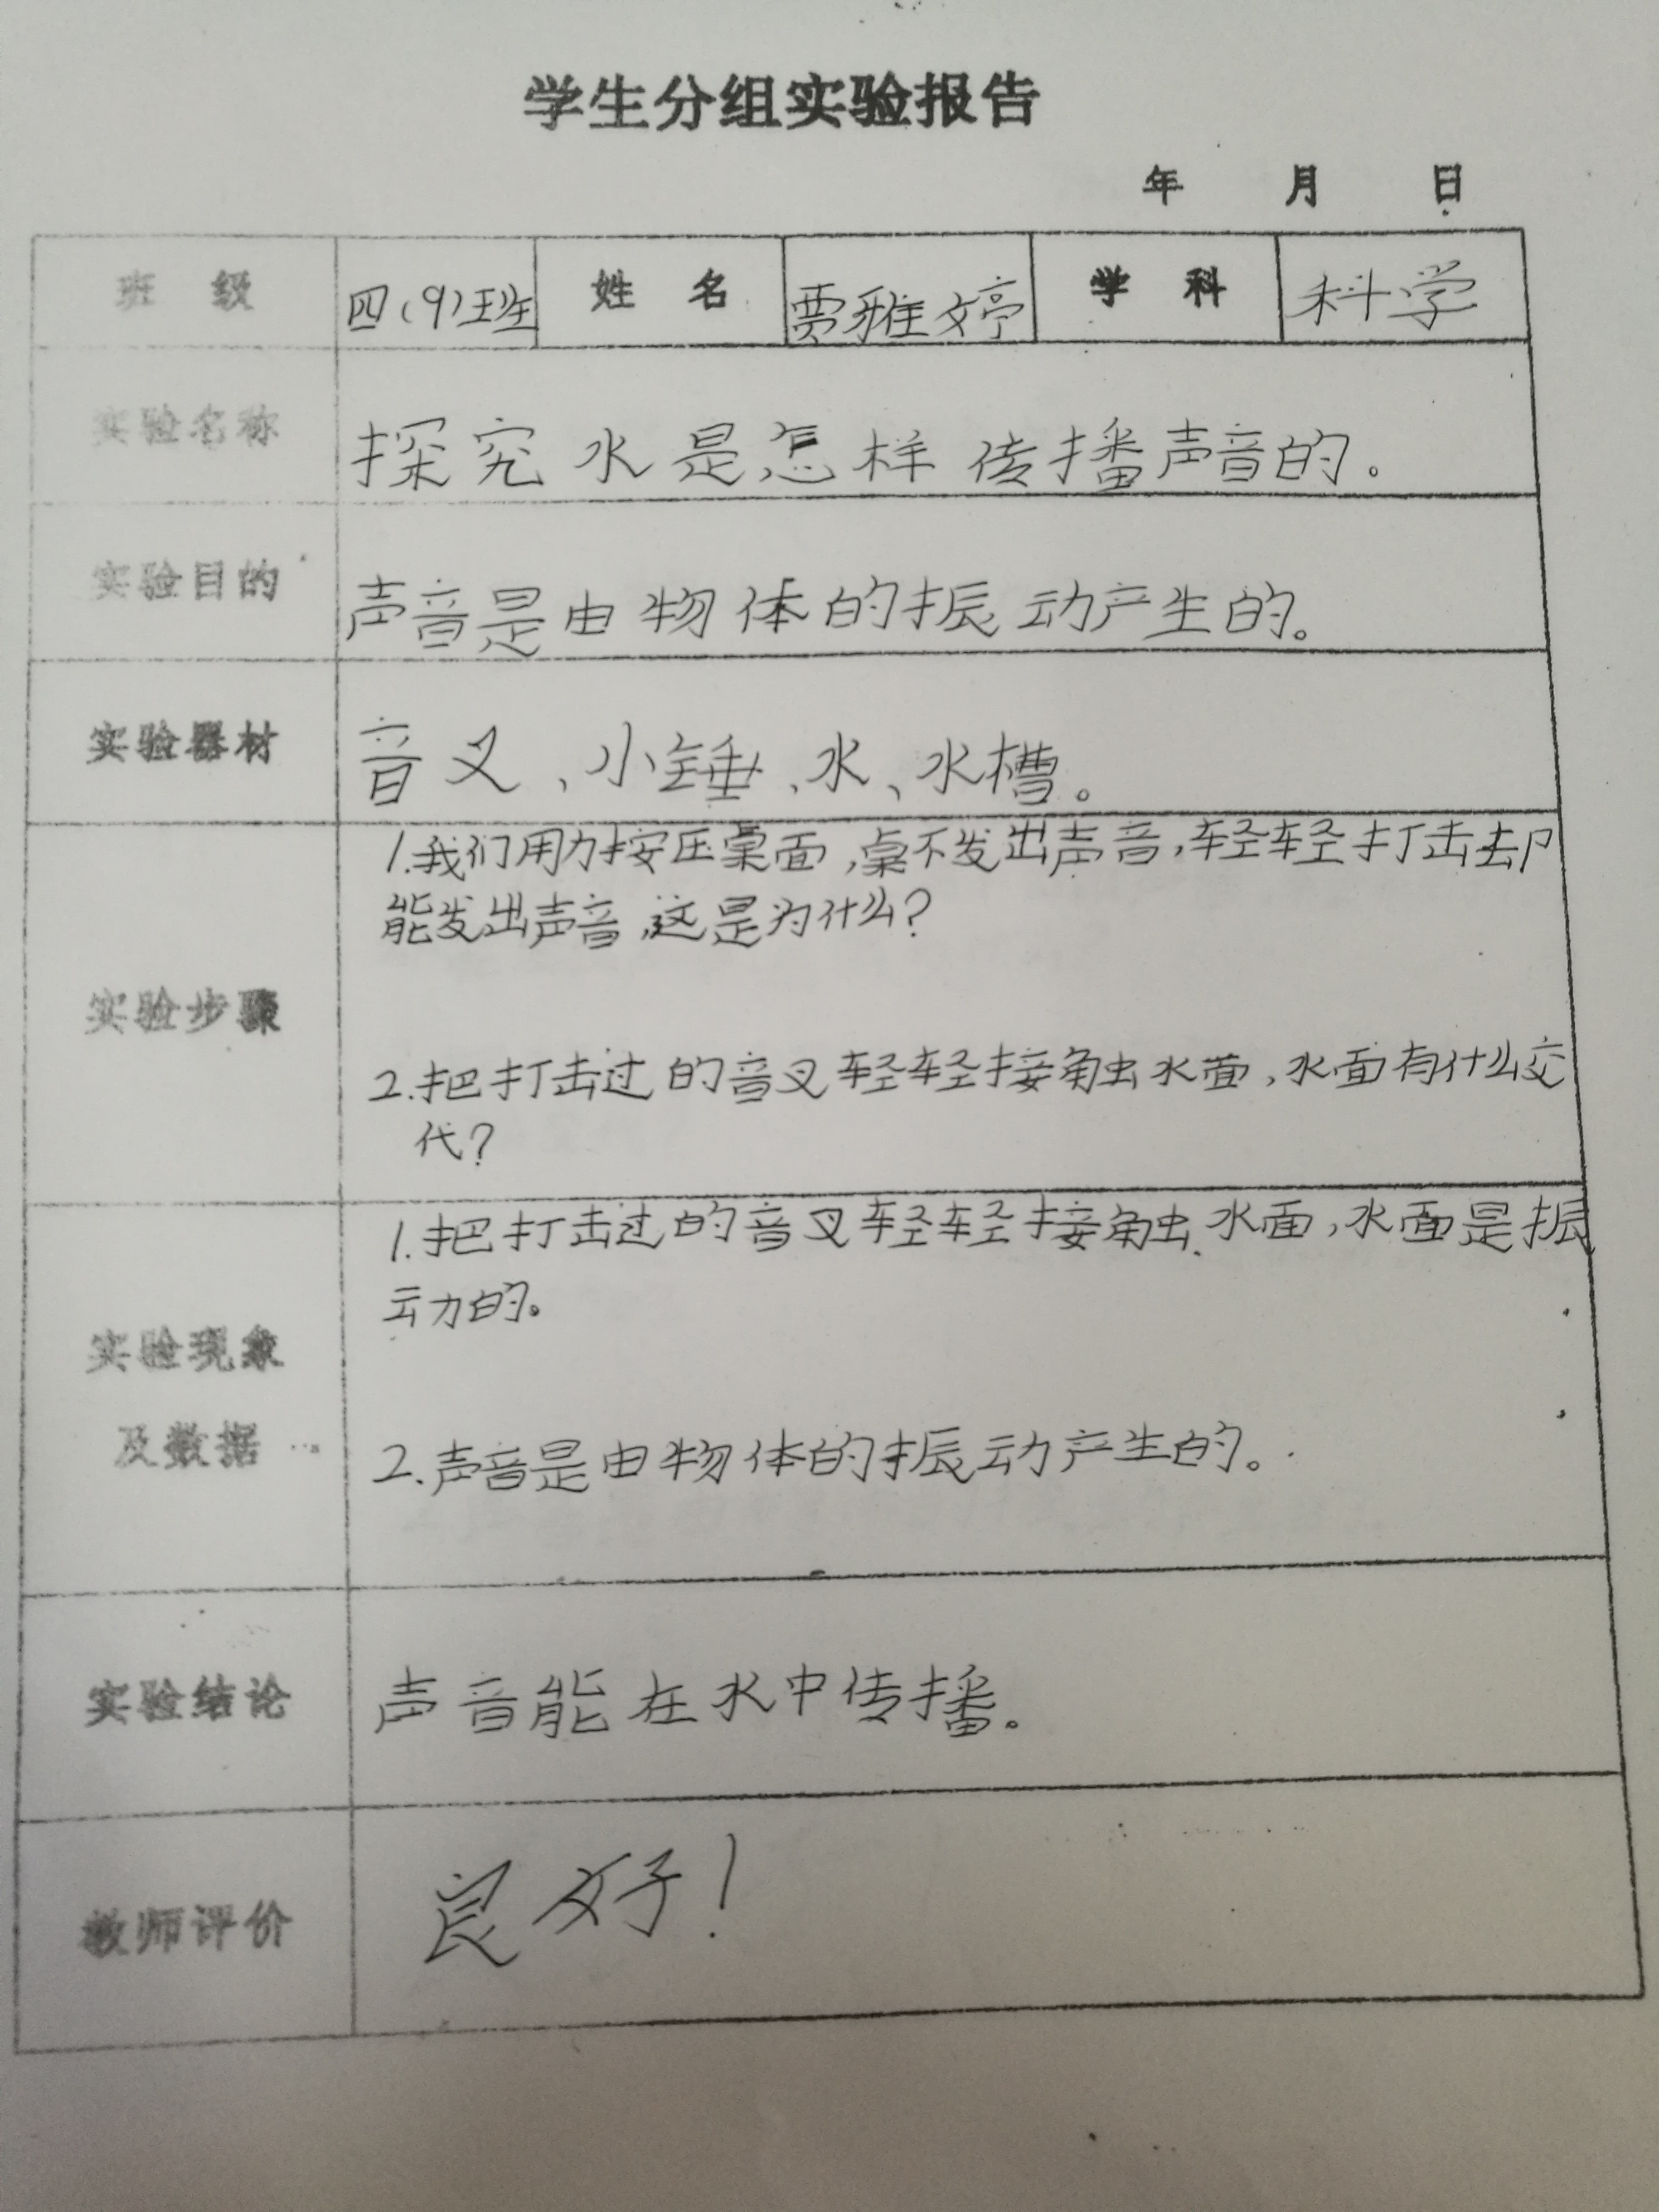 学生分组实验报告
年 月 日
班 级 四(9)班 姓 名 贾雅婷 学 科 科学
实验名称 探究水是怎样传播声音的。
实验目的 声音是由物体的振动产生的。
实验器材 音叉、小锤、水、水槽。
1.我们用力按压桌面,桌不发出声音,轻轻打击却
能发出声音,这是为什么?
实验步骤
2.把打击过的音叉轻轻接触水面,水面有什么交
代?
1.把打击过的音叉轻轻接触水面,水面是振
动的。
实验现象
及数据
2.声音是由物体的振动产生的。
实验结论 声音能在水中传播。
教师评价 良好!